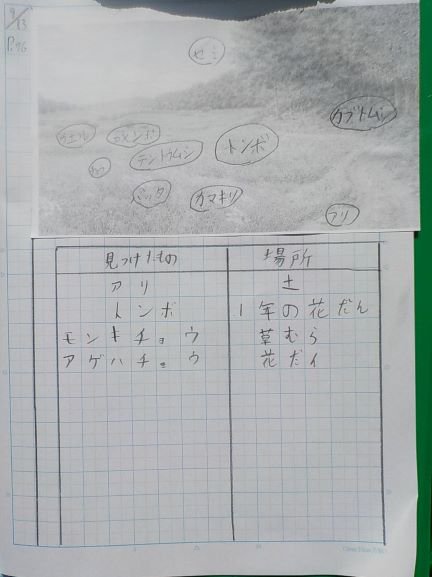 9/13
P.76
セミ
カブトムシ
カエル
アメンボ
トンボ
テントウムシ
バッタ
カマキリ
アリ
見つけたもの 場所
アリ 土
トンボ 1年の花だん
モンキチョウ 草むら
アゲハチョウ 花だん